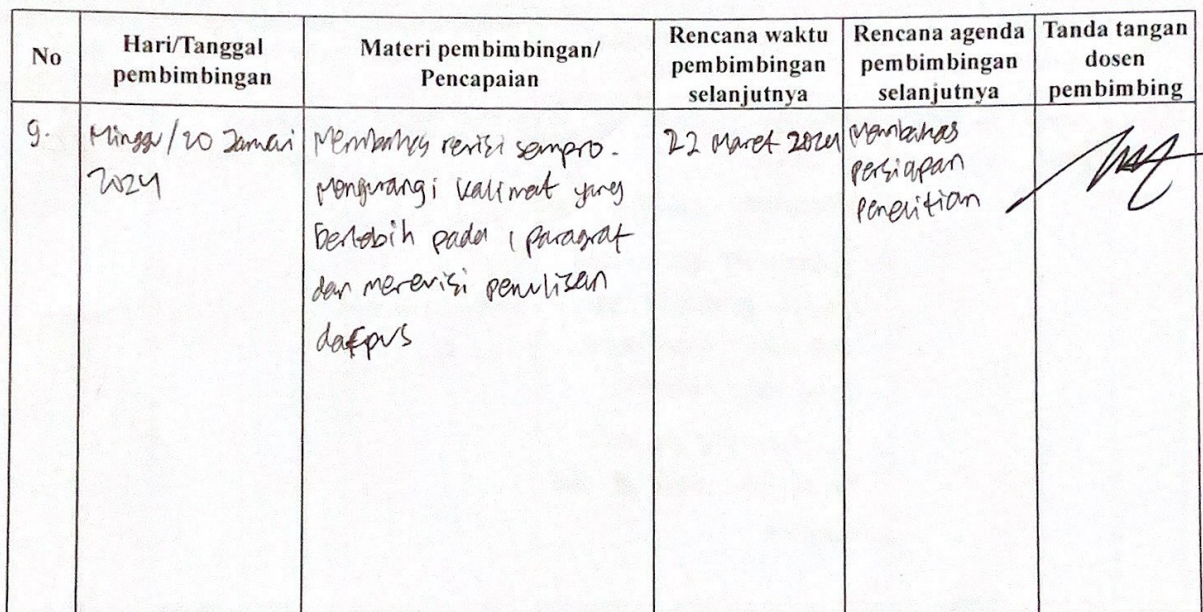 No
Hari/Tanggal
pembimbingan
Materi pembimbingan/
Pencapaian
Rencana waktu
pembimbingan
selanjutnya
Rencana agenda
pembimbingan
selanjutnya
Tanda tangan
dosen
pembimbing
9.
Minggu/20 Januari
2024
Membahas revisi sempro.
Mengurangi kalimat yang
berlebih pada 1 paragraf
dan merevisi penulisan
dafpus
22 Maret 2024
Membahas
persiapan
penelitian